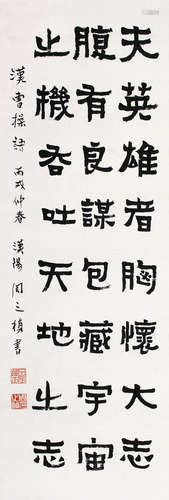 夫英雄者胸懷大志
腹有良謀包藏宇宙
之機吞吐天地之志
漢曹操語 丙戌仲春 漢陽 書